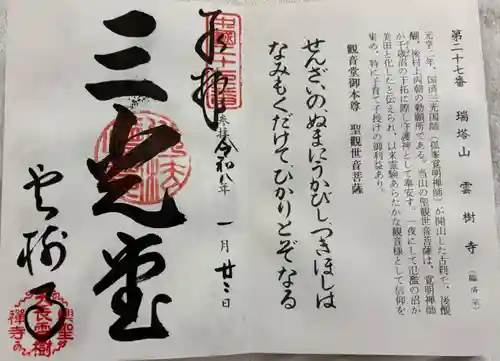 第二十七番　瑞塔山　雲樹寺（臨済宗）
元亨二年、国済三光国師（孤峯覚明禅師）が開山した古刹で、後醍
醐、後村上両朝の勅願所である。当山の聖観世音菩薩は、覚明禅師
が千歳沼の干拓に際し守護神として奉安す。一夜にして氾濫の沼が
美田と化したと伝えられ、以来霊験あらたかな観音様として信仰を
集め、特に子育て子授けの御利益あり。
観音堂御本尊　聖観世音菩薩
せんざいの、ぬまにうかびし、つきほしは
なみもくだけて、ひかりとぞなる
奉拝
参拝 令和八年 一月廿二日
三光堂
雲樹寺